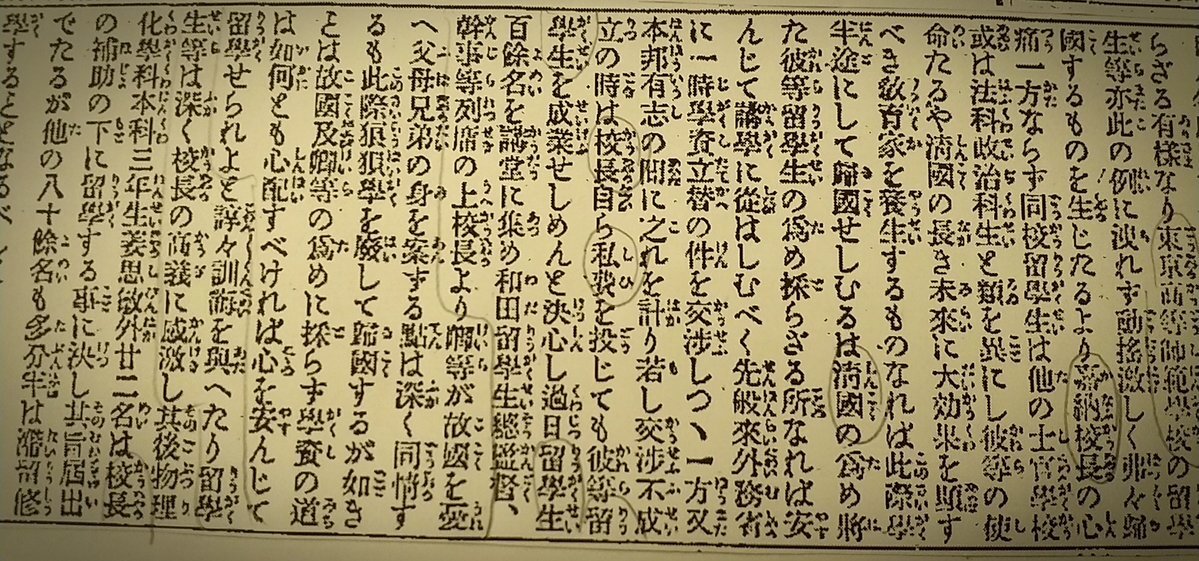 らざる有様なり東京高等師範學校の留學
生等亦此の例に洩れず動搖激しく非々歸
國するものを生じたるより嘉納校長の心
痛一方ならず同校留學生は他の士官學校
或は法科政治科生と類を異にし彼等の使
命たるや淸國の長き未來に大効果を顯す
べき敎育家を養生するものなれば此際學
半途にして歸國せしむるは淸國の爲め將
た彼等留學生の爲め採らざる所なれば安
んじて講學に從はしむべく先般來外務省
に一時學資立替の件を交渉しつヽ一方又
本邦有志の間に之れを計り若し交渉不成
立の時は校長自ら私費を投じても彼等留
學生を成業せしめんと決心し過日留學生
百餘名を講堂に集め和田留學生總監督、
幹事等列席の上校長より爾等が故國を憂
へ父母兄弟の身を案ずる點は深く同情す
るも此際狼狽學を廢して歸國するが如き
とは故國及卿等の爲めに採らず學資の道
は如何とも心配すべければ心を安んじて
留學せられよと諄々訓諭を與へたり留學
生等は深く校長の高義に感激し其後物理
化學科本科三年生姜思敏外廿二名は校長
の補助の下に留學する事に決し其旨屆出
でたるが他の八十餘名も多分半は滯留修
學することとなるべし